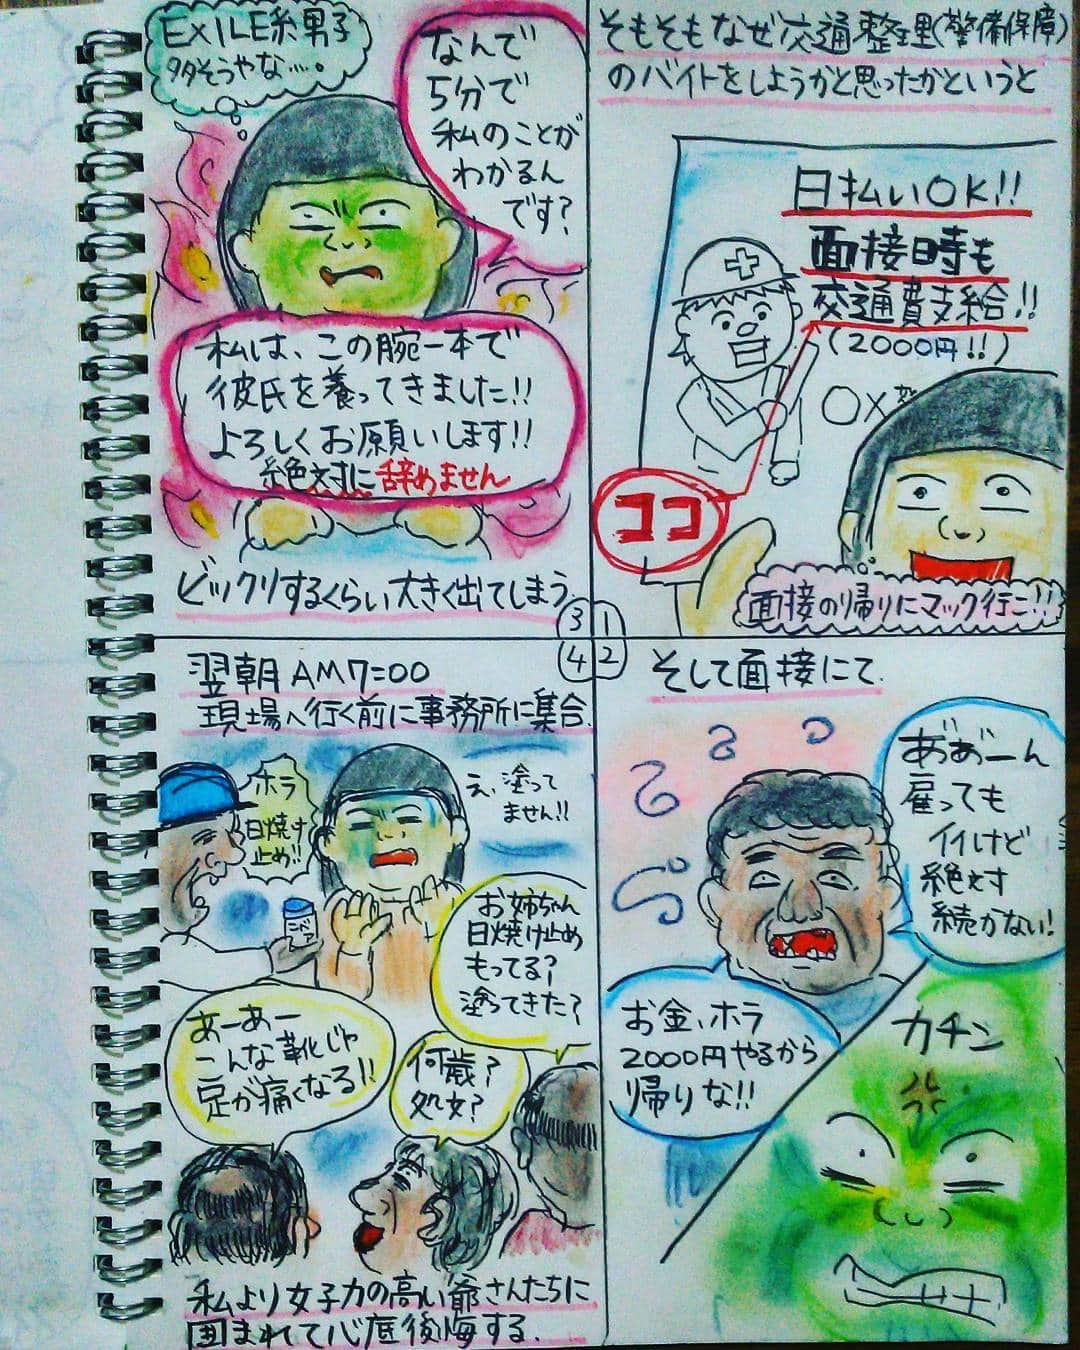 そもそもなぜ交通整理(警備保障)
のバイトをしようかと思ったかというと
日払いOK!!
面接日時も
交通費支給!!
(2000円!!)
〇×
ココ
面接の帰りにマック行こ!!
1
2
そして面接にて
あ゛あ゛ーん
雇っても
イイけど
絶対
続かない!
お金、ホラ
2000円やるから
帰りな!!
カチン
EXILE系男子
多そうやな……。
なんで
5分で
私のことが
わかるん
です?
私は、この腕一本で
彼氏を養ってきました!!
よろしくお願いします!!
絶対に辞めません
ビックリするくらい大きく出てしまう
3
4
翌朝AM7=00
現場へ行く前に事務所に集合.
ホラ
日焼け
止め!!
え、塗って
ません!!
ニベア
お姉ちゃん
日焼け止め
もってる?
塗ってきた?
あーあー
こんな靴じゃ
足が痛くなる!!
何歳?
処女?
私より女子力の高い爺さんたちに
囲まれて心底後悔する.